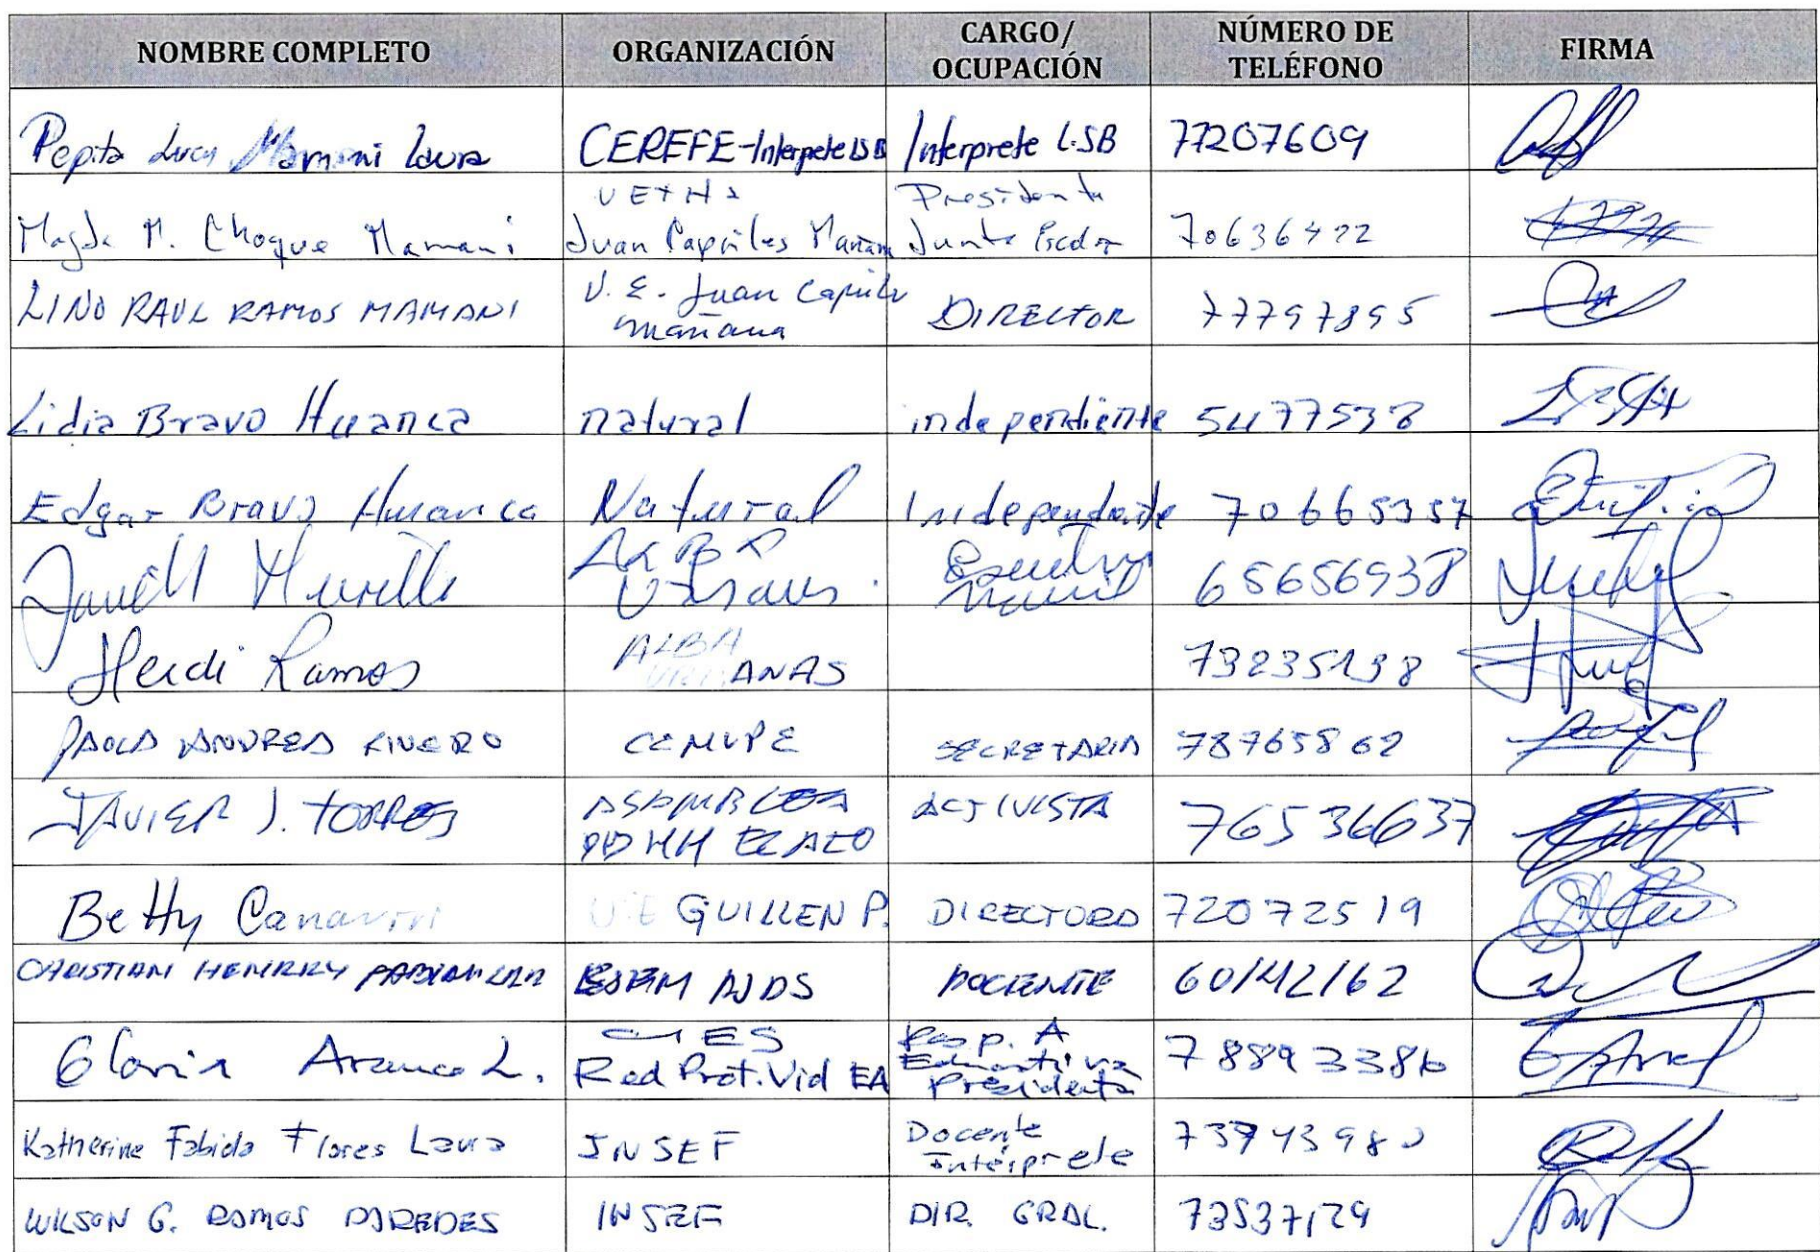 NOMBRE COMPLETO ORGANIZACIÓN CARGO/ OCUPACIÓN NÚMERO DE TELÉFONO FIRMA
Pepita Lucy Mamani Laura CEREFE-Interprete LSB Interprete LSB 77207609
Magda M. Choque Mamani Juan Capriles Mañana Presidenta Junta 70636422
LINO RAUL RAMOS MAMANI U.E. Juan Capriles mañana DIRECTOR 77797895
Lidia Bravo Huanca natural independiente 5477538
Edgar Bravo Huanca Natural Independiente 70665357
Murillo 65656938
Heidi Ramos ALBA ANAS 73235138
PAOLA ANDREA RIVERO CEMUPE SECRETARIA 78765862
JAVIER J. TORRES ASAMBLEA DDHH EL ALTO ACTIVISTA 76536637
Betty Canaviri U E GUILLEN P. DIRECTORA 72072519
CHRISTIAN HENRRY DOCENTE 60142162
Gloria L. CIES Red Prot. Vid EA Resp. A Educativa Presidenta 78893386
Katherine Fabiola Flores Laura INSEF Docente Intérprete 73743980
WILSON G. RAMOS PAREDES INSEF DIR. GRAL. 73537129